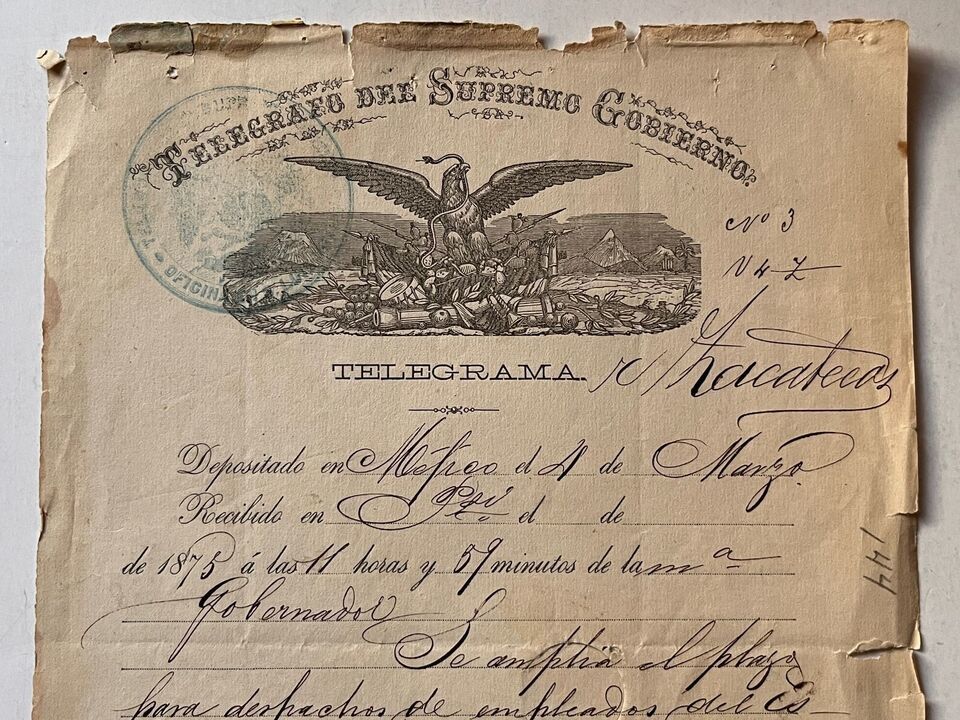 TELEGRAFO DEL SUPREMO GOBIERNO.
OFICINA
Nº 3
TELEGRAMA. Zacatecas
Depositado en Mexico el 4 de Marzo
Recibido en el de
de 1875 á las 11 horas y 59 minutos de la mª
Gobernador
Se amplia el plazo
para despachos de empleados del Es-
144